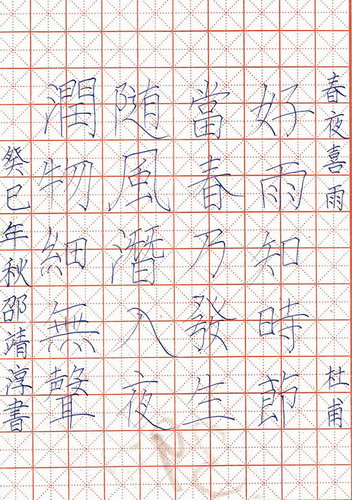 春夜喜雨 杜甫
好雨知時節
當春乃發生
随風潛入夜
潤物細無聲
癸巳年秋邵靖淳書